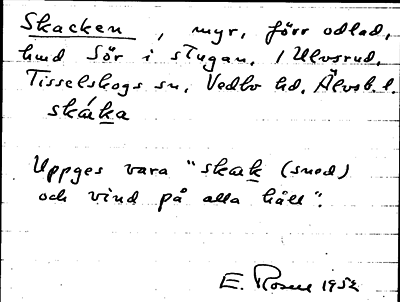 Skacken, myr, förr odlad,
hmd Sör i stugan. 1 Ulvsrud,
Tisselskogs sn, Vedbo hd, Älvsb. l.
skáka
Uppges vara "skak (sned)
och vind på alla håll".
E. Rosell 1952